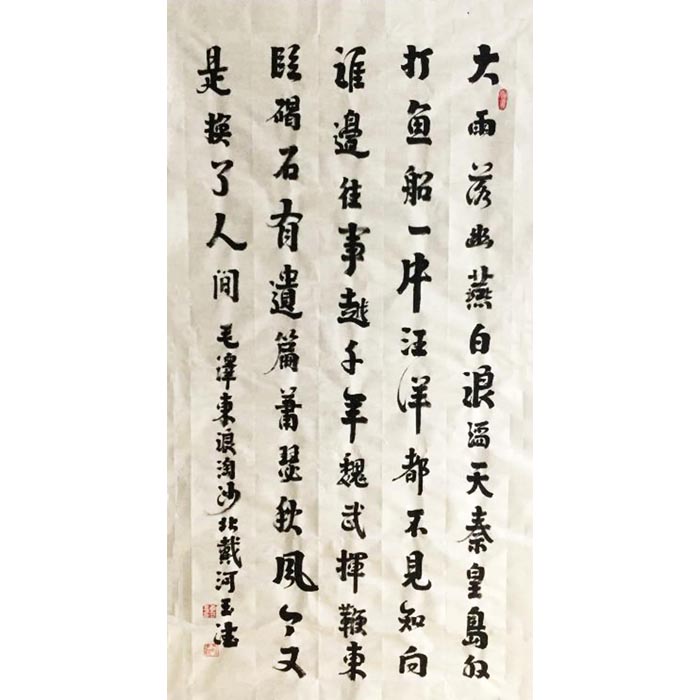 大雨落幽燕白浪滔天秦皇島外
打鱼船一片汪洋都不見知向
誰邊往事越千年魏武揮鞭東
臨碣石有遺篇蕭瑟秋風今又
是換了人间毛澤東浪淘沙北戴河